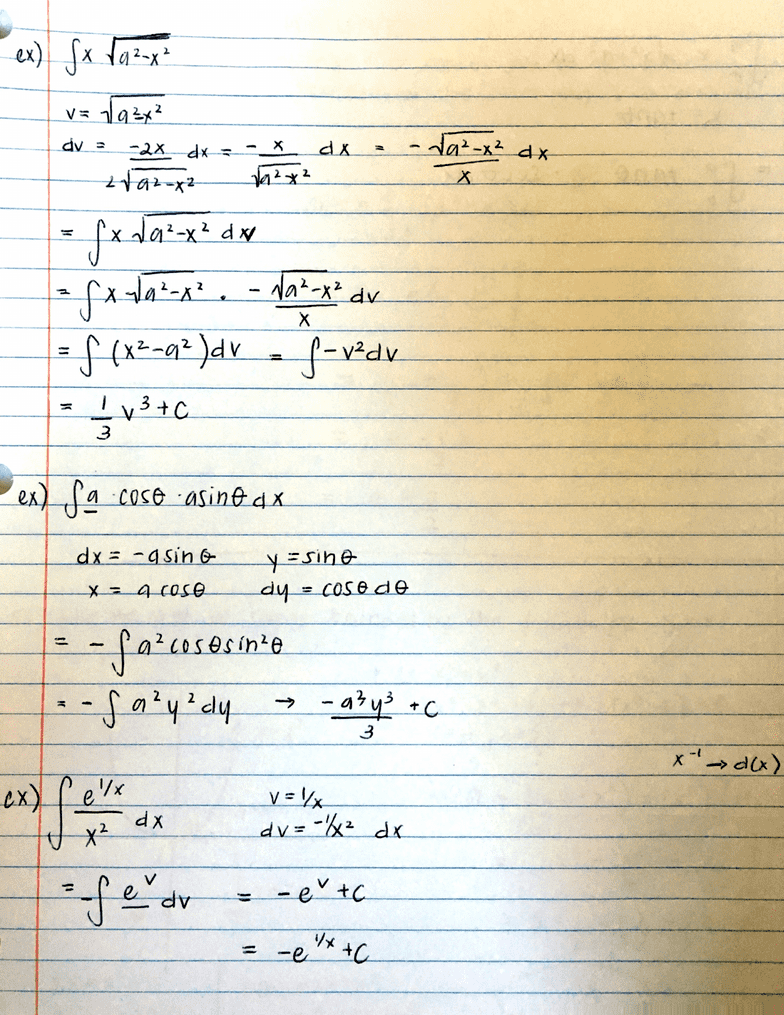 ex) ∫x √(a²-x²)
v = √(a²-x²)
dv = -2x / 2√(a²-x²) dx = - x / √(a²-x²) dx = - √(a²-x²) / x dx
= ∫x √(a²-x²) dx
= ∫x √(a²-x²) . - √(a²-x²) / x dv
= ∫(x²-a²)dv = ∫-v²dv
= 1/3 v³+C
ex) ∫a · cosθ · asinθ dx
dx = -asinθ y = sinθ
x = a cosθ dy = cosθ dθ
= -∫a² cosθsin²θ
= -∫a²y²dy → -a³y³ / 3 + C
x⁻¹ → d(x)
ex) ∫ e^(1/x) / x² dx v = 1/x
dv = -1/x² dx
= -∫e^v dv = -e^v + C
= -e^(1/x) + C